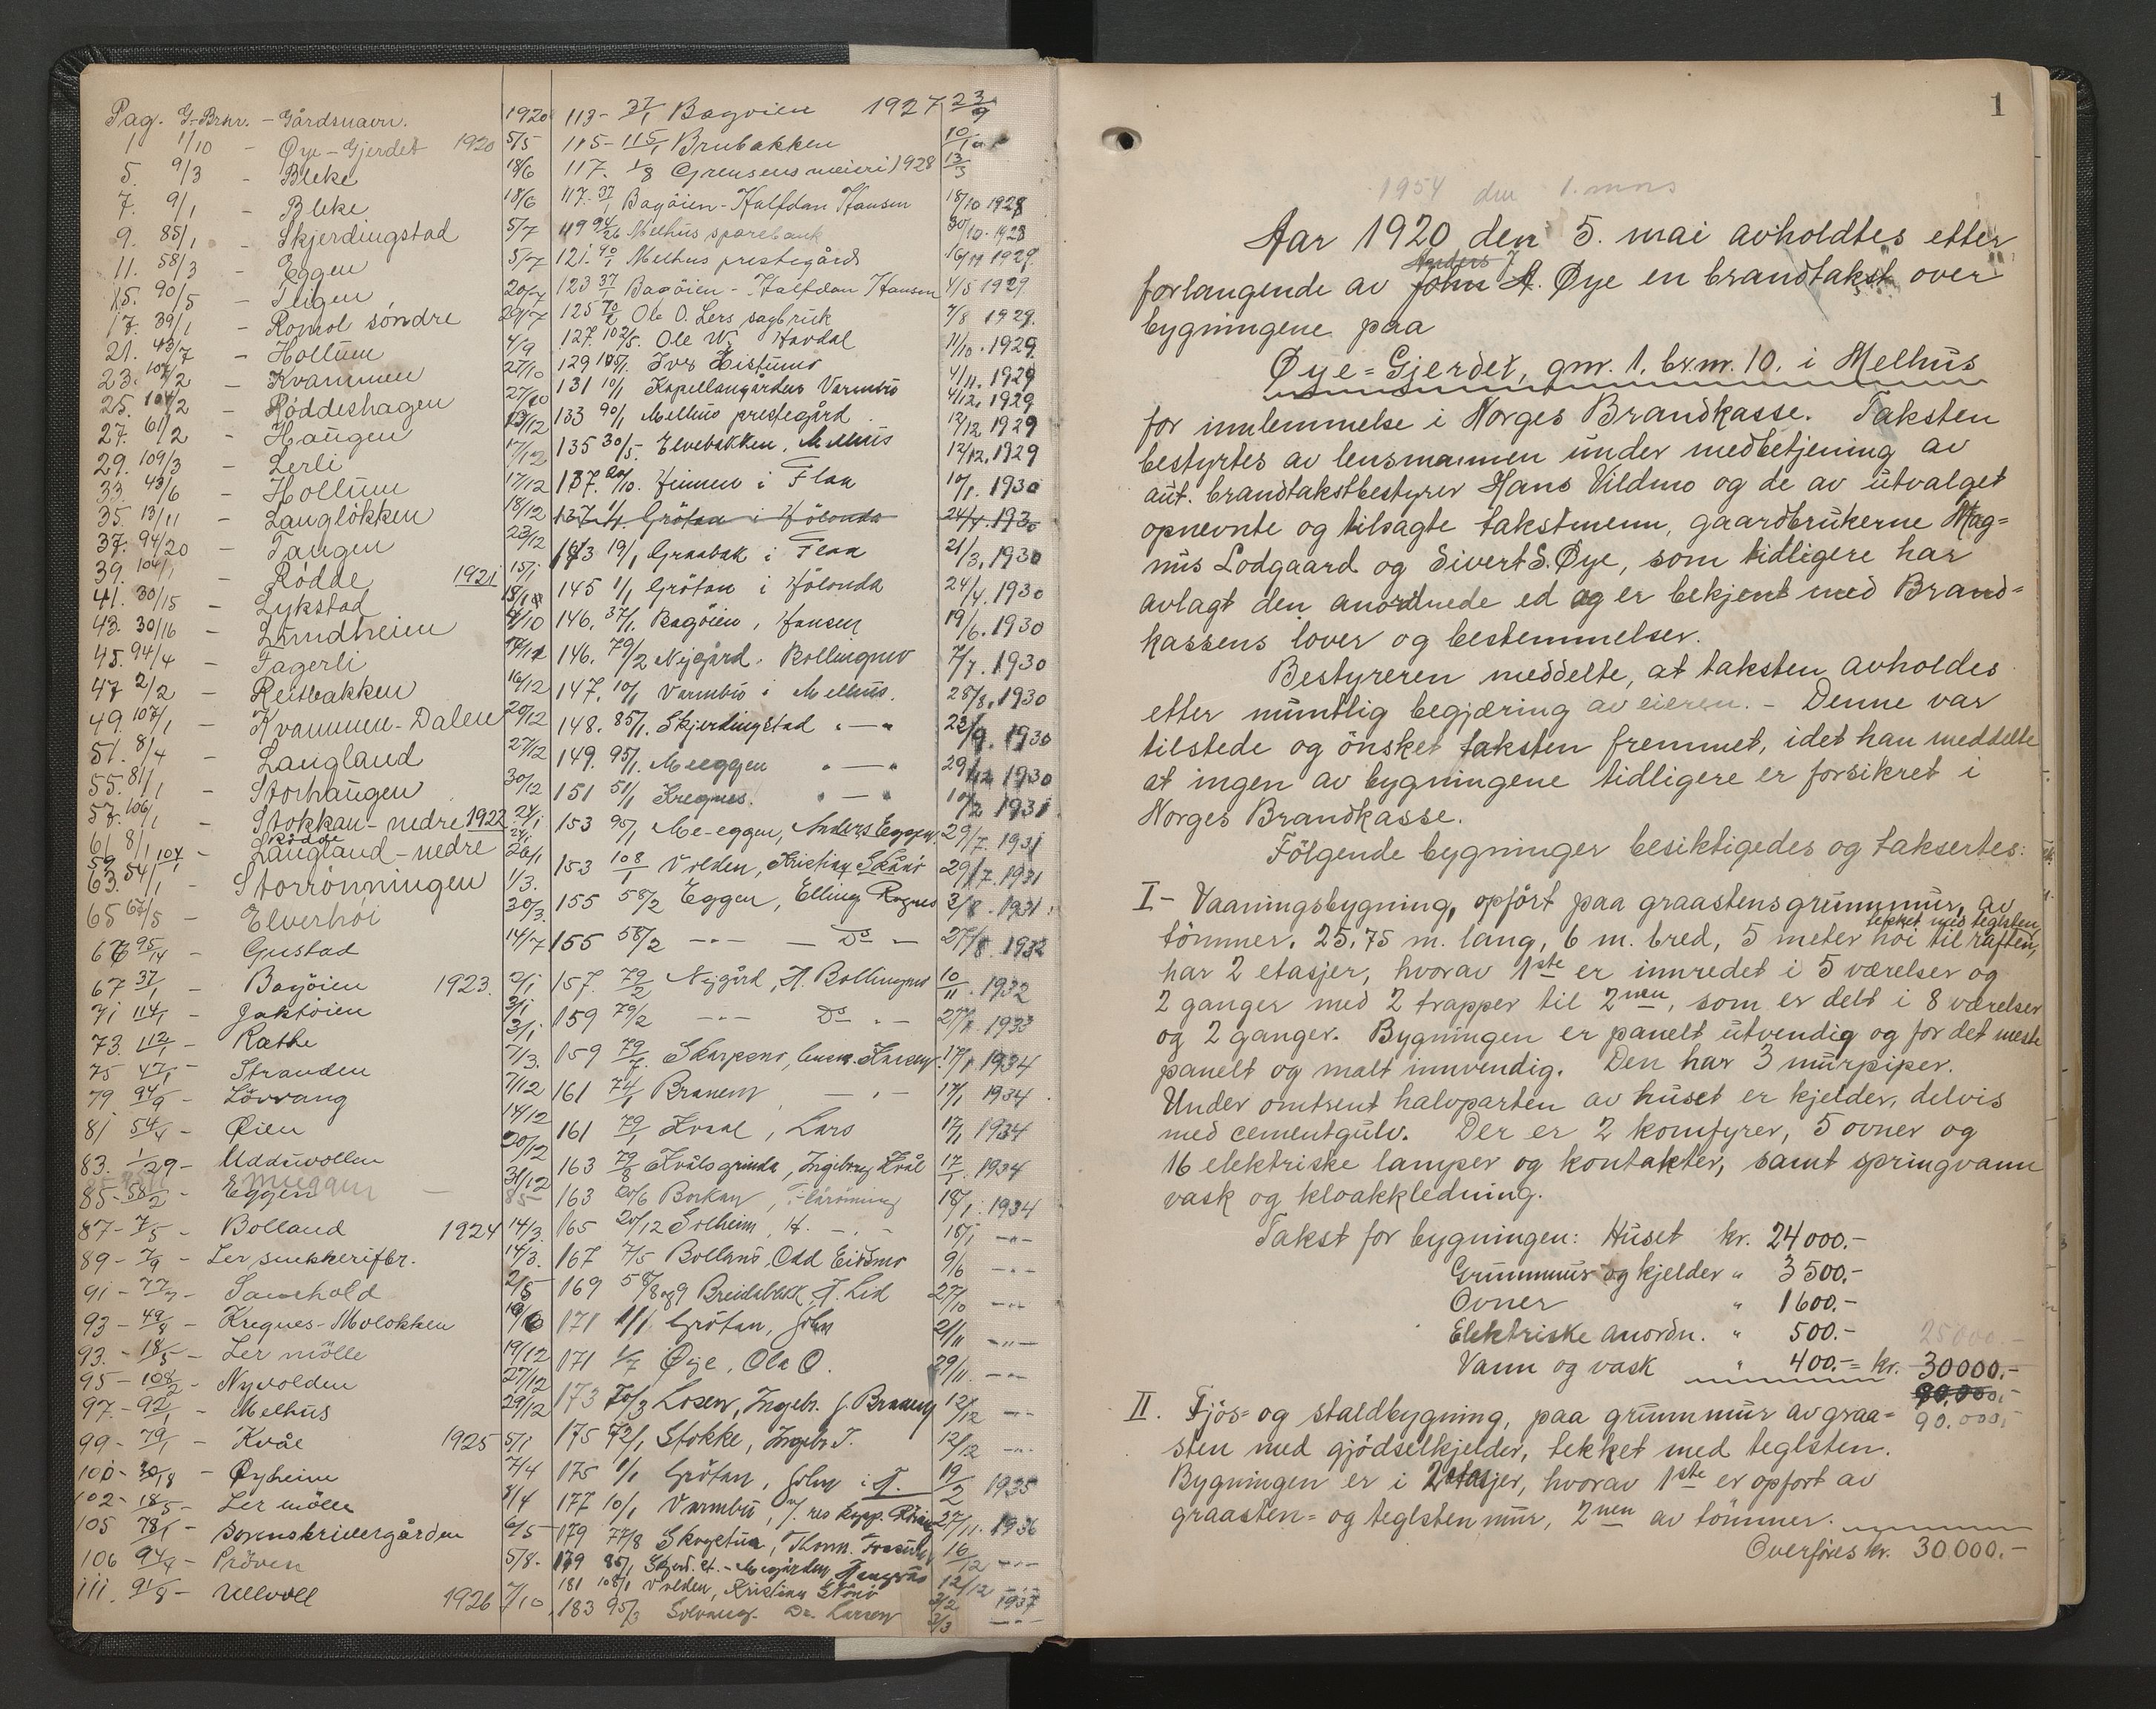 Pag. G-Brnr. - Gårdsnavn.
1 1/10 - Øye-Gjerdet 1920 5/5
5. 9/3 - Bleke 18/6
7. 9/1 - Bleke 18/6
9. 85/1 - Skjerdingstad 5/7
11. 58/3 - Eggen 5/7
15. 90/5 - Teigen 20/7
17. 39/1 - Romol søndre 29/7
21. 43/7 - Hollum 4/9
23. 107/2 - Kvammen 27/10
25. 104/2 - Røddeshagen 27/10
27. 61/2 - Haugen 13/12
29. 109/3 - Lerli 17/12
33. 43/6 - Hollum 17/12
35. 13/11 - Langløkken 18/12
37. 94/20 - Tangen 23/12
39. 104/1 - Rødde 1921 15/1
41. 30/15 - Lykstad
43. 30/16 - Lundheim 4/10
45. 94/4 - Fagerli
47 2/2 - Reitbakken 16/12
49. 107/1 - Kvammen-Dalen 20/12
51. 8/4 - Langland 27/12
55. 81/1 - Storhaugen 30/12
57. 106/1 - Stokkan-nedre 1922 24/1
61 8/1 - Langland-nedre
59 104/1 Rødde
63. 54/1 - Storrønningen 1/3.
65 67/5 - Elverhøi 30/3.
66 95/14 - Gustad 14/7
67 37/1 - Bagøien 1923. 2/1
71 114/1 - Jaktøien 3/1
73. 112/1 - Ræthe 3/1
75 47/1 - Stranden 7/3.
79 94/9 - Lövvang 7/12
81 54/4 - Øien 14/12
83. 1/29 - Uddüvollen 20/12
85 - 58/2 - Eggen 31/12
87 - 7/5 - Bolland 1924 14/3.
89 - 7/9 - Ler snekkerifbr. 14/3.
91 - 77/7 - Samhold 2/5
93 - 49/8 - Kregnes-Moløkken
93. - 18/5 - Ler mölle 19/12
95 - 108/2 - Nyvolden 27/12
97. - 92/1 - Melhus 29/12
99 - 79/1 - Kvål 1925 5/1
100 - 30/18 - Øyheim 7/4
102 - 18/5 - Ler mölle 8/4
105 78/1 - Sorenskrivergården 6/5
106 94/4 - Pröven 5/8.
111. 91/8 - Ullvoll 1926 7/10
1920
113 - 37/1 Bagøien 1927 23/9
115 - 115/1 Brubakken 10/10
117. 1/8 Grensens meieri 1928 13/3
117. 37/1 Bagøien - Halfdan Hansen 18/10 1928
119 94/26 Melhus sparebank 30/10. 1928
121. 90/1 Melhus prestegård 16/11 1929.
123 37/1 Bagøien - Halfdan Hansen 4/5 1929
125 70/2 Ole O. Lers sagbruk 7/8 1929.
127. 102/5. Ole W. Havdal 11/10. 1929.
129 105/1. Ivar Eistunø 4/11. 1929
131 10/1 Kapellangården Varmbo 4/12. 1929
133 90/1 Melhus prestegård 12/12 1929
135 30/5. Elvebakken, Melhus 12/12. 1929
137. 20/10. Jinnen i Flaa 10/1. 1930
137 1/1. Gröten i Hölonda 24/4. 1930
143 19/1 Graabak i Flaa 21/3. 1930
145 1/1 Gröten i Hölonda 24/4. 1930
146. 37/1. Bagøien, Hansen 19/6. 1930
146. 79/2 Nygård, Bollingmo 7/7. 1930
147. 10/1 Varmbo i Melhus. 28/8. 1930
148. 85/1. Skjerdingstad " — " 23/9. 1930
149. 95/1. Meeggen " — " 29/12 1930
151 51/1 Kregnes. " — " 10/2 1931.
153 95/1 Me-eggen, Anders Eggen 29/7. 1931
153 108/1 Volden, Kristian Skånø 29/7. 1931
155 58/2 Eggen, Elling Rognes 3/8. 1931.
155 58/2 -"- — Do — 27/8. 1932
157. 79/2 Nygård, A. Bollingmo 10/11. 1932
159 79/2 -"- Do " - 27/7. 1933
159 79/7. Skarpnes, lensm. Hansen. 17/1 1934
161 74/1 Branem — " — 17/1 1934
161 79/1 Kvaal, Lars 17/1 1934
163 79/8 Kvålsgrinda, Ingeborg Kvål 17/1. 1934
163 20/6 Borkan, Flårönning 18/1. 1934
165 20/12 Solheim, H. - " - 18/1 -"-
167 7/5 Bolland, Odd Eidsmo 9/6 -"-
169 58/8 og 9 Breidablikk, A. Lid 27/10 -"-
171 1/1 Gröten, John 2/11 -"-
171 1/7 Øye, Ola O. 29/11. -"-
173 70/3 Losen, Ingebr. J. Branem 12/12 -"-
175 72/1 Stokke, Ingebr. T. 12/12 -"-
175 1/1 Gröten, John A. 19/2 1935
177 10/1 Varmbo, v/ res. kapp. 27/11. 1936
179 77/8 Skogetun, Thom. 16/12 -"-
179 85/1 Skjerd.st. - Megården, 12/12 -"-
181 108/1 Volden, Kristian Skånø 3/2 1937
183 95/3 Solvang. Dr. Larsen 3/3 -"-
1
1954 den 1. mars
Aar 1920 den 5. mai avholdtes etter
Anders J
forlangende av John A. Øye en brandtakst over
bygningene paa
Øye=Gjerdet, gnr. 1. br.nr. 10. i Melhus
for innlemmelse i Norges Brandkasse. Taksten
bestyrtes av lensmannen under medbetjening av
aut. brandtakstbestyrer Hans Vildmo og de av utvalget
opnevnte og tilsagte takstmenn, gaardbrukerne Mag=
nus Lodgaard og Sivert S. Øye, som tidligere har
avlagt den anordnede ed og er bekjent med Brand=
kassens lover og bestemmelser.
Bestyreren meddelte, at taksten avholdes
etter muntlig begjæring av eieren. - Denne var
tilstede og ønsket taksten fremmet, idet han meddelte
at ingen av bygningene tidligere er forsikret i
Norges Brandkasse.
Følgende bygninger besiktigedes og taksertes:
I - Vaaningsbygning, opført paa graastensgrunmur, av
tekket med teglsten,
tømmer. 25,75 m. lang, 6 m. bred, 5 meter høi til raften,
har 2 etasjer, hvorav 1ste er innredet i 5 værelser og
2 ganger med 2 trapper til 2nen, som er delt i 8 værelser
og 2 ganger. Bygningen er panelt utvendig og for det meste
panelt og malt innvendig. Den har 3 murpiper.
Under omtrent halvparten av huset er kjelder, delvis
med cementgulv. Der er 2 komfyrer, 5 ovner og
16 elektriske lamper og kontakter, samt springvann
vask og kloakkledning.
Takst for bygningen: Huset kr. 24000.-
Grunnmur og kjelder " 3500.-
Ovner " 1600.-
Elektriske anordn. " 500.- 25000.-
Vann og vask " 400.- = kr. 30000.-
90.000.-
II. Fjøs= og staldbygning, paa grunnmur av graa= 90.000.-
sten med gjødselkjelder, tekket med teglsten.
Bygningen er i 2 etasjer, hvorav 1ste er opført av
graasten= og teglstenmur, 2nen av tømmer.
Overføres kr. 30.000.-